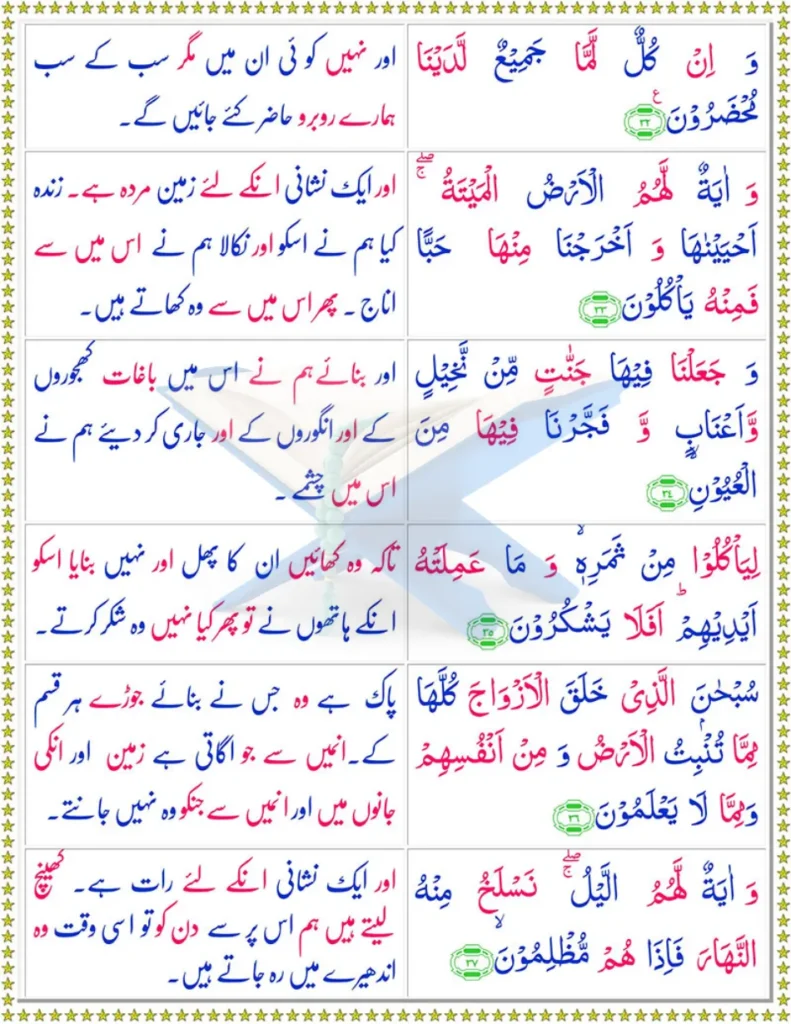 وَ اِنْ كُلٌّ لَّمَّا جَمِيْعٌ لَّدَيْنَا
مُحْضَرُوْنَ ع ٣٢
اور نہیں کوئی ان میں مگر سب کے سب
ہمارے روبرو حاضر کئے جائیں گے۔
وَ اٰيَةٌ لَّهُمُ الْاَرْضُ الْمَيْتَةُ ۖۚ
اَحْيَيْنٰهَا وَ اَخْرَجْنَا مِنْهَا حَبًّا
فَمِنْهُ يَاْكُلُوْنَ ٣٣
اور ایک نشانی انکے لئے زمین مردہ ہے۔ زندہ
کیا ہم نے اسکو اور نکالا ہم نے اس میں سے
اناج ۔ پھر اس میں سے وہ کھاتے ہیں۔
وَ جَعَلْنَا فِيْهَا جَنّٰتٍ مِّنْ نَّخِيْلٍ
وَّاَعْنَابٍ وَّ فَجَّرْنَا فِيْهَا مِنَ
الْعُيُوْنِ ۙ ٣٤
اور بنائے ہم نے اس میں باغات کھجوروں
کے اور انگوروں کے اور جاری کر دیئے ہم نے
اس میں چشمے ۔
لِيَاْكُلُوْا مِنْ ثَمَرِهٖ ۙ وَ مَا عَمِلَتْهُ
اَيْدِيْهِمْ ؕ اَفَلَا يَشْكُرُوْنَ ٣٥
تاکہ وہ کھائیں ان کا پھل اور نہیں بنایا اسکو
انکے ہاتھوں نے تو پھر کیا نہیں وہ شکر کرتے۔
سُبْحٰنَ الَّذِىْ خَلَقَ الْاَزْوَاجَ كُلَّهَا
مِمَّا تُنْۢبِتُ الْاَرْضُ وَ مِنْ اَنْفُسِهِمْ
وَمِمَّا لَا يَعْلَمُوْنَ ٣٦
پاک ہے وہ جس نے بنائے جوڑے ہر قسم
کے۔ انمیں سے جو اگاتی ہے زمین اور انکی
جانوں میں اور انمیں سے جنکو وہ نہیں جانتے۔
وَ اٰيَةٌ لَّهُمُ الَّيْلُ ۖۚ نَسْلَخُ مِنْهُ
النَّهَارَ فَاِذَا هُمْ مُّظْلِمُوْنَ ۙ ٣٧
اور ایک نشانی انکے لئے رات ہے۔ کھینچ
لیتے ہیں ہم اس پر سے دن کو تو اسی وقت وہ
اندھیرے میں رہ جاتے ہیں۔